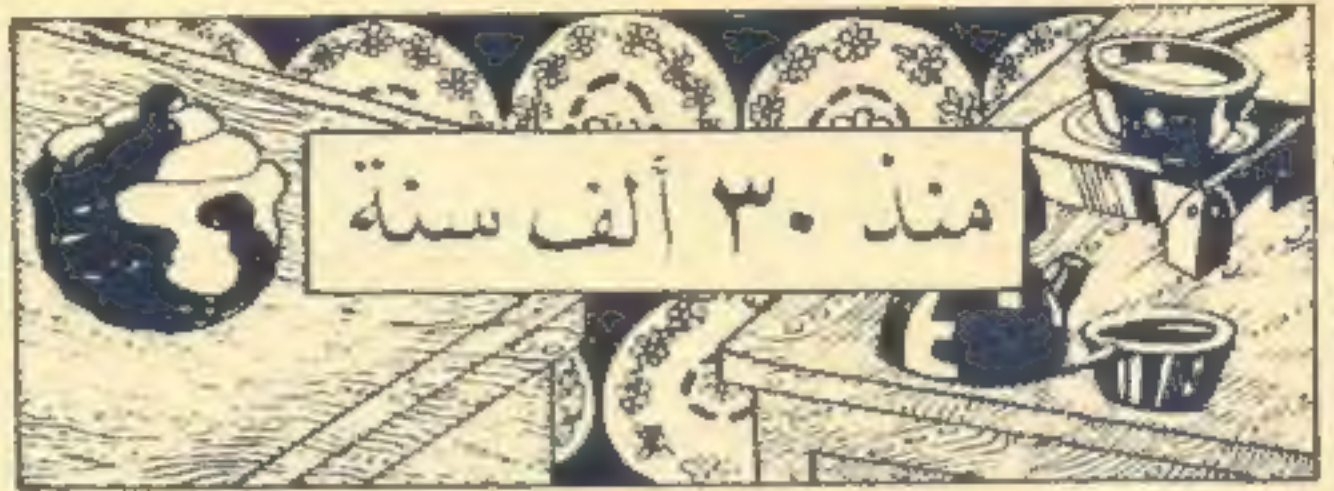 منذ ٣٠ ألف سنة